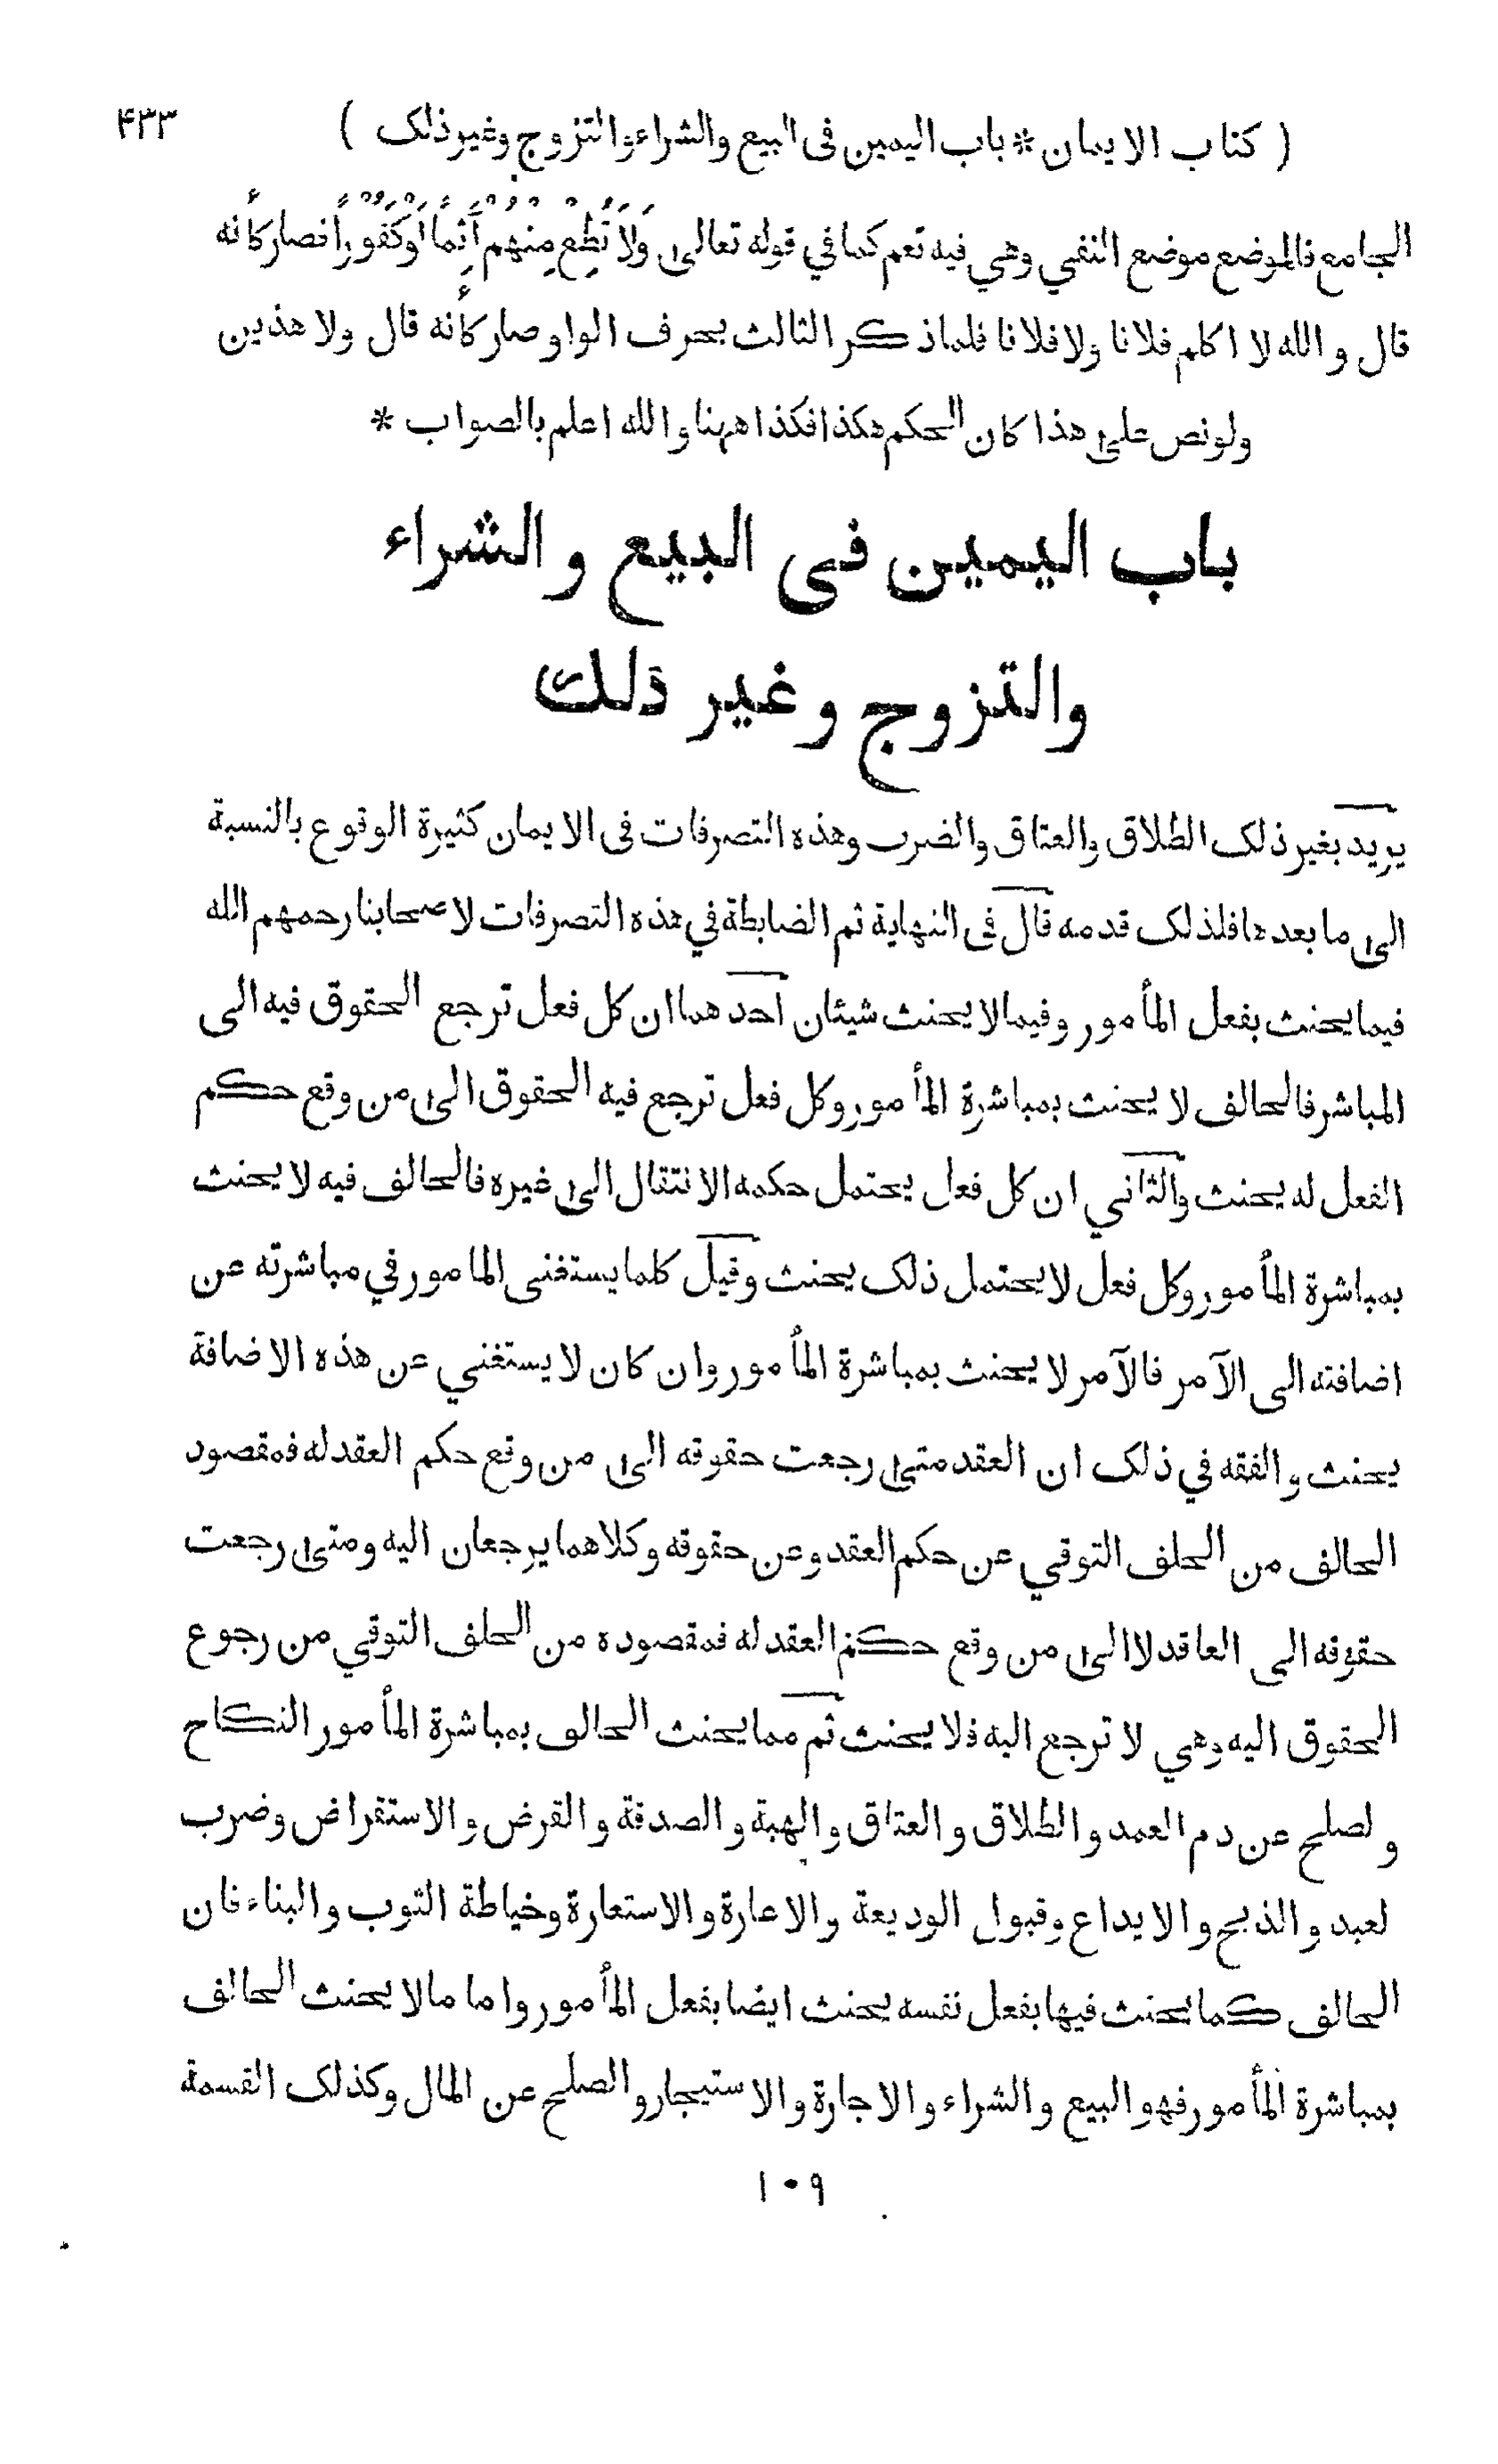 ( كتاب الايمان * باب اليمين فى البيع والشراء والتزوج وغير ذلك ) ۴۳۳
الجامع فالموضع موضع النفي وهي فيه تعم كما في قوله تعالى وَلَا تُطِعْ مِنْهُمْ آثِمًا اَوْ كَفُوْرًا فصار كأنه
قال والله لا اكلم فلانا ولا فلانا فلما ذكر الثالث بحرف الواو صار كأنه قال ولا هذين
ولو نص على هذا كان الحكم هكذا فكذا ههنا والله اعلم بالصواب *
باب اليمين فى البيع و الشراء
والتزوج و غير ذلك
يريد بغير ذلك الطلاق والعتاق والضرب وهذه التصرفات فى الايمان كثيرة الوقوع بالنسبة
الى ما بعدها فلذلك قدمه قال فى النهاية ثم الضابطة في هذه التصرفات لاصحابنا رحمهم الله
فيما يحنث بفعل المأمور وفيما لا يحنث شيئان احدهما ان كل فعل ترجع الحقوق فيه الى
المباشر فالحالف لا يحنث بمباشرة المأمور وكل فعل ترجع فيه الحقوق الى من وقع حكم
الفعل له يحنث والثاني ان كل فعل يحتمل حكمه الانتقال الى غيره فالحالف فيه لا يحنث
بمباشرة المأمور وكل فعل لا يحتمل ذلك يحنث وقيل كلما يستغنى المامور في مباشرته عن
اضافته الى الآمر فالآمر لا يحنث بمباشرة المأمور وان كان لا يستغني عن هذه الاضافة
يحنث والفقه في ذلك ان العقد متى رجعت حقوقه الى من وقع حكم العقد له فمقصود
الحالف من الحلف التوقي عن حكم العقد وعن حقوقه وكلاهما يرجعان اليه ومتى رجعت
حقوقه الى العاقد لا الى من وقع حكم العقد له فمقصوده من الحلف التوقي من رجوع
الحقوق اليه وهي لا ترجع اليه فلا يحنث ثم مما يحنث الحالف بمباشرة المأمور النكاح
ولصلح عن دم العمد والطلاق والعتاق والهبة والصدقة والقرض والاستقراض وضرب
لعبد والذبح والايداع وقبول الوديعة والاعارة والاستعارة وخياطة الثوب والبناء فان
الحالف كما يحنث فيها بفعل نفسه يحنث ايضا بفعل المأمور واما ما لا يحنث الحالف
بمباشرة المأمور فهو البيع والشراء والاجارة والاستيجار والصلح عن المال وكذلك القسمة
۱۰۹